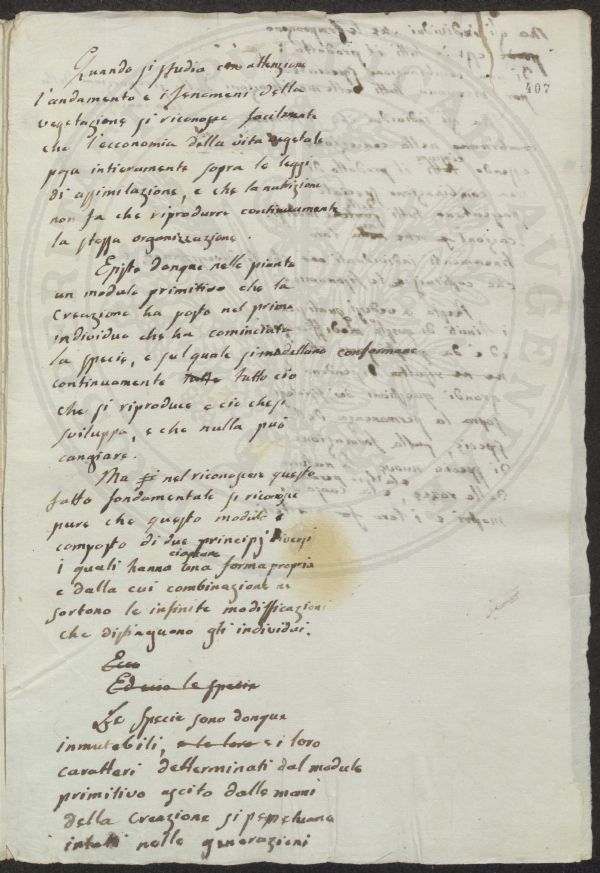 407
Quando si studia con attenzione
l'andamento e i fenomeni della
vegetazione si riconosce facilmente
che l'ecconomia della vita vegetale
posa intieramente sopra le leggi
di assimilazione, e che la nutrizione
non fa che riprodurre continuamente
la stessa organizzazione.
Esiste donque nelle piante
un module primitivo che la
Creazione ha posto nel primo
individuo che ha cominciata
la specie, e sul quale si modellano conformano
continuamente tutto tutto ciò
che si riproduce e ciò che si
sviluppa, e che nulla può
cangiare.
Ma se nel riconoscere questo
fatto fondamentale si riconosce
pure che questo module è
composto di due principj diversi
ciascuno
i quali hanno una forma propria
e dalla cui combinazione ne
sortono le infinite modifficazioni
che distinguono gli individui.
Ecco
Ed ecco le specie
Le Specie sono donque
inmutebili, e le loro e i loro
caratteri detterminati dal module
primitivo escito dalle mani
della Creazione si
intatti nelle generazioni